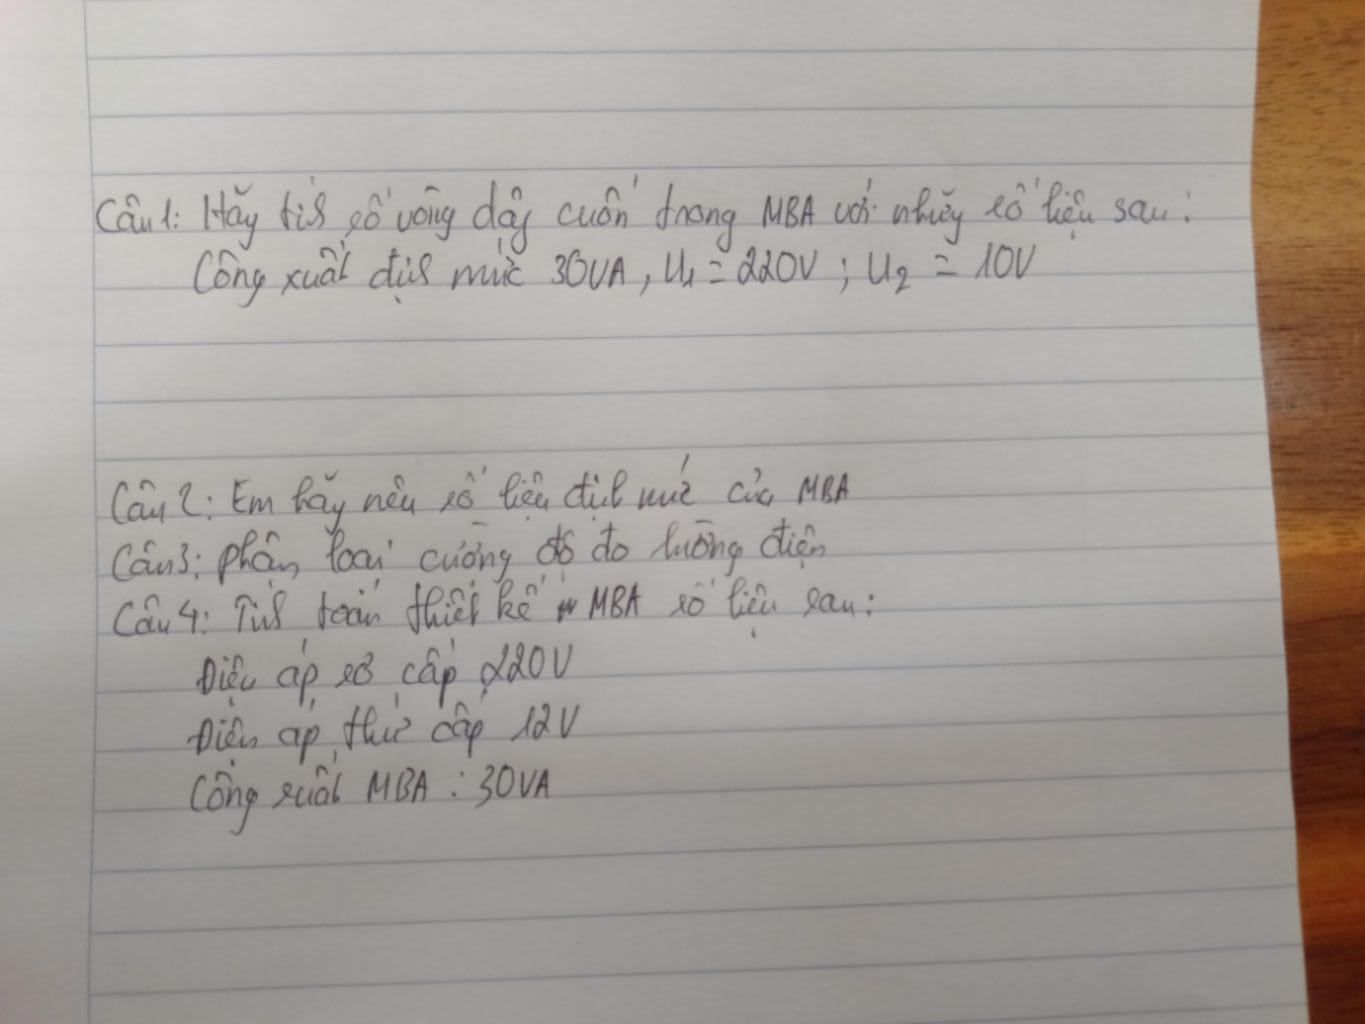 Câu 1: Hãy tính số vòng dây cuốn trong MBA với những số liệu sau:
Công xuất định mức 30VA, U1 = 220V ; U2 = 10V
Câu 2: Em hãy nêu số liệu định mức của MBA
Câu 3: phân loại cường độ đo lường điện
Câu 4: Tính toán thiết kế MBA số liệu sau:
Điện áp sơ cấp 220V
Điện áp thứ cấp 12V
Công suất MBA : 30VA